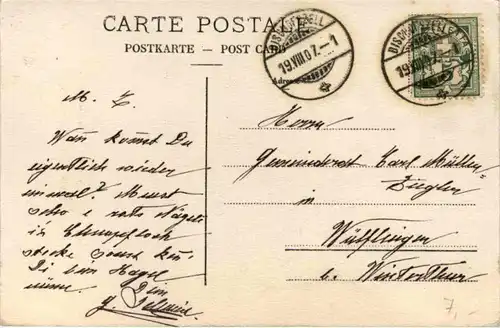 CARTE POSTALE
POSTKARTE — POST CARD
BISCHOFSZELL
19.VIII.07.-1
BISCHOFSZELL
19.VIII.07
M. L.
Wann kommst Du
eigentlich wieder
einmal? Must
scho e rots Nägeli
is Chnopfloch
stecke sonst
Di
Dim
Herrn
Gemeinderat Karl Müller
Ziegler
in
Wülflingen
b. Winterthur
7,-